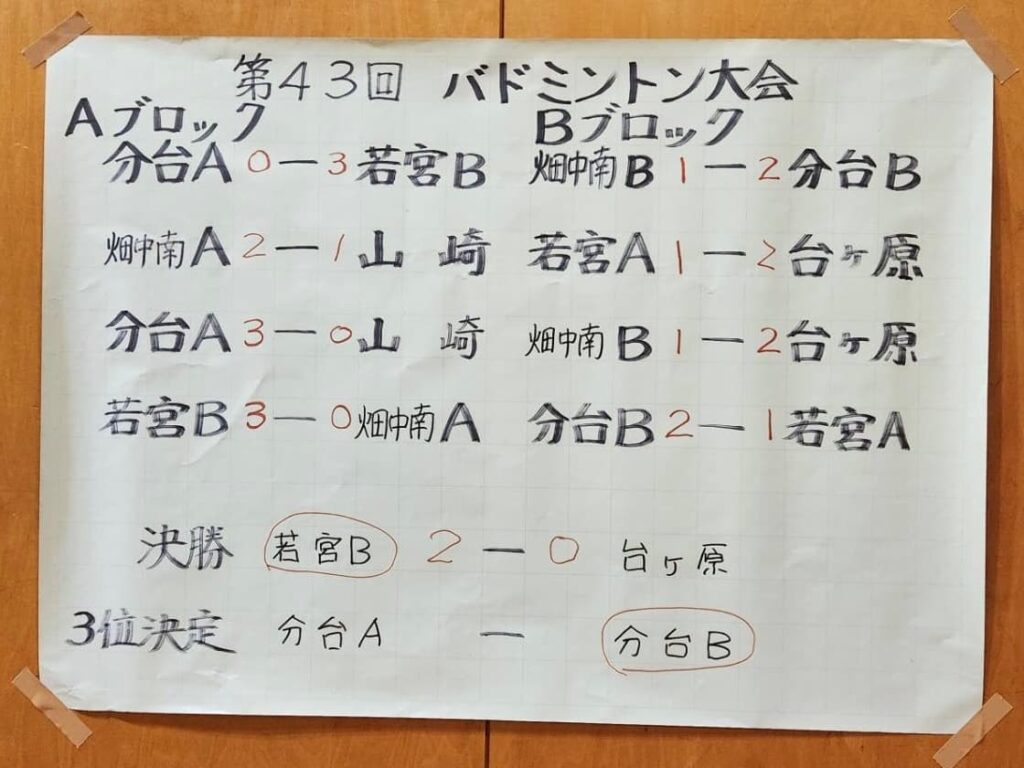 第43回 バドミントン大会
Aブロック Bブロック
分台A 0－3 若宮B 畑中南B 1－2 分台B
畑中南A 2－1 山崎 若宮A 1－2 台ヶ原
分台A 3－0 山崎 畑中南B 1－2 台ヶ原
若宮B 3－0 畑中南A 分台B 2－1 若宮A
決勝 若宮B 2－0 台ヶ原
3位決定 分台A － 分台B